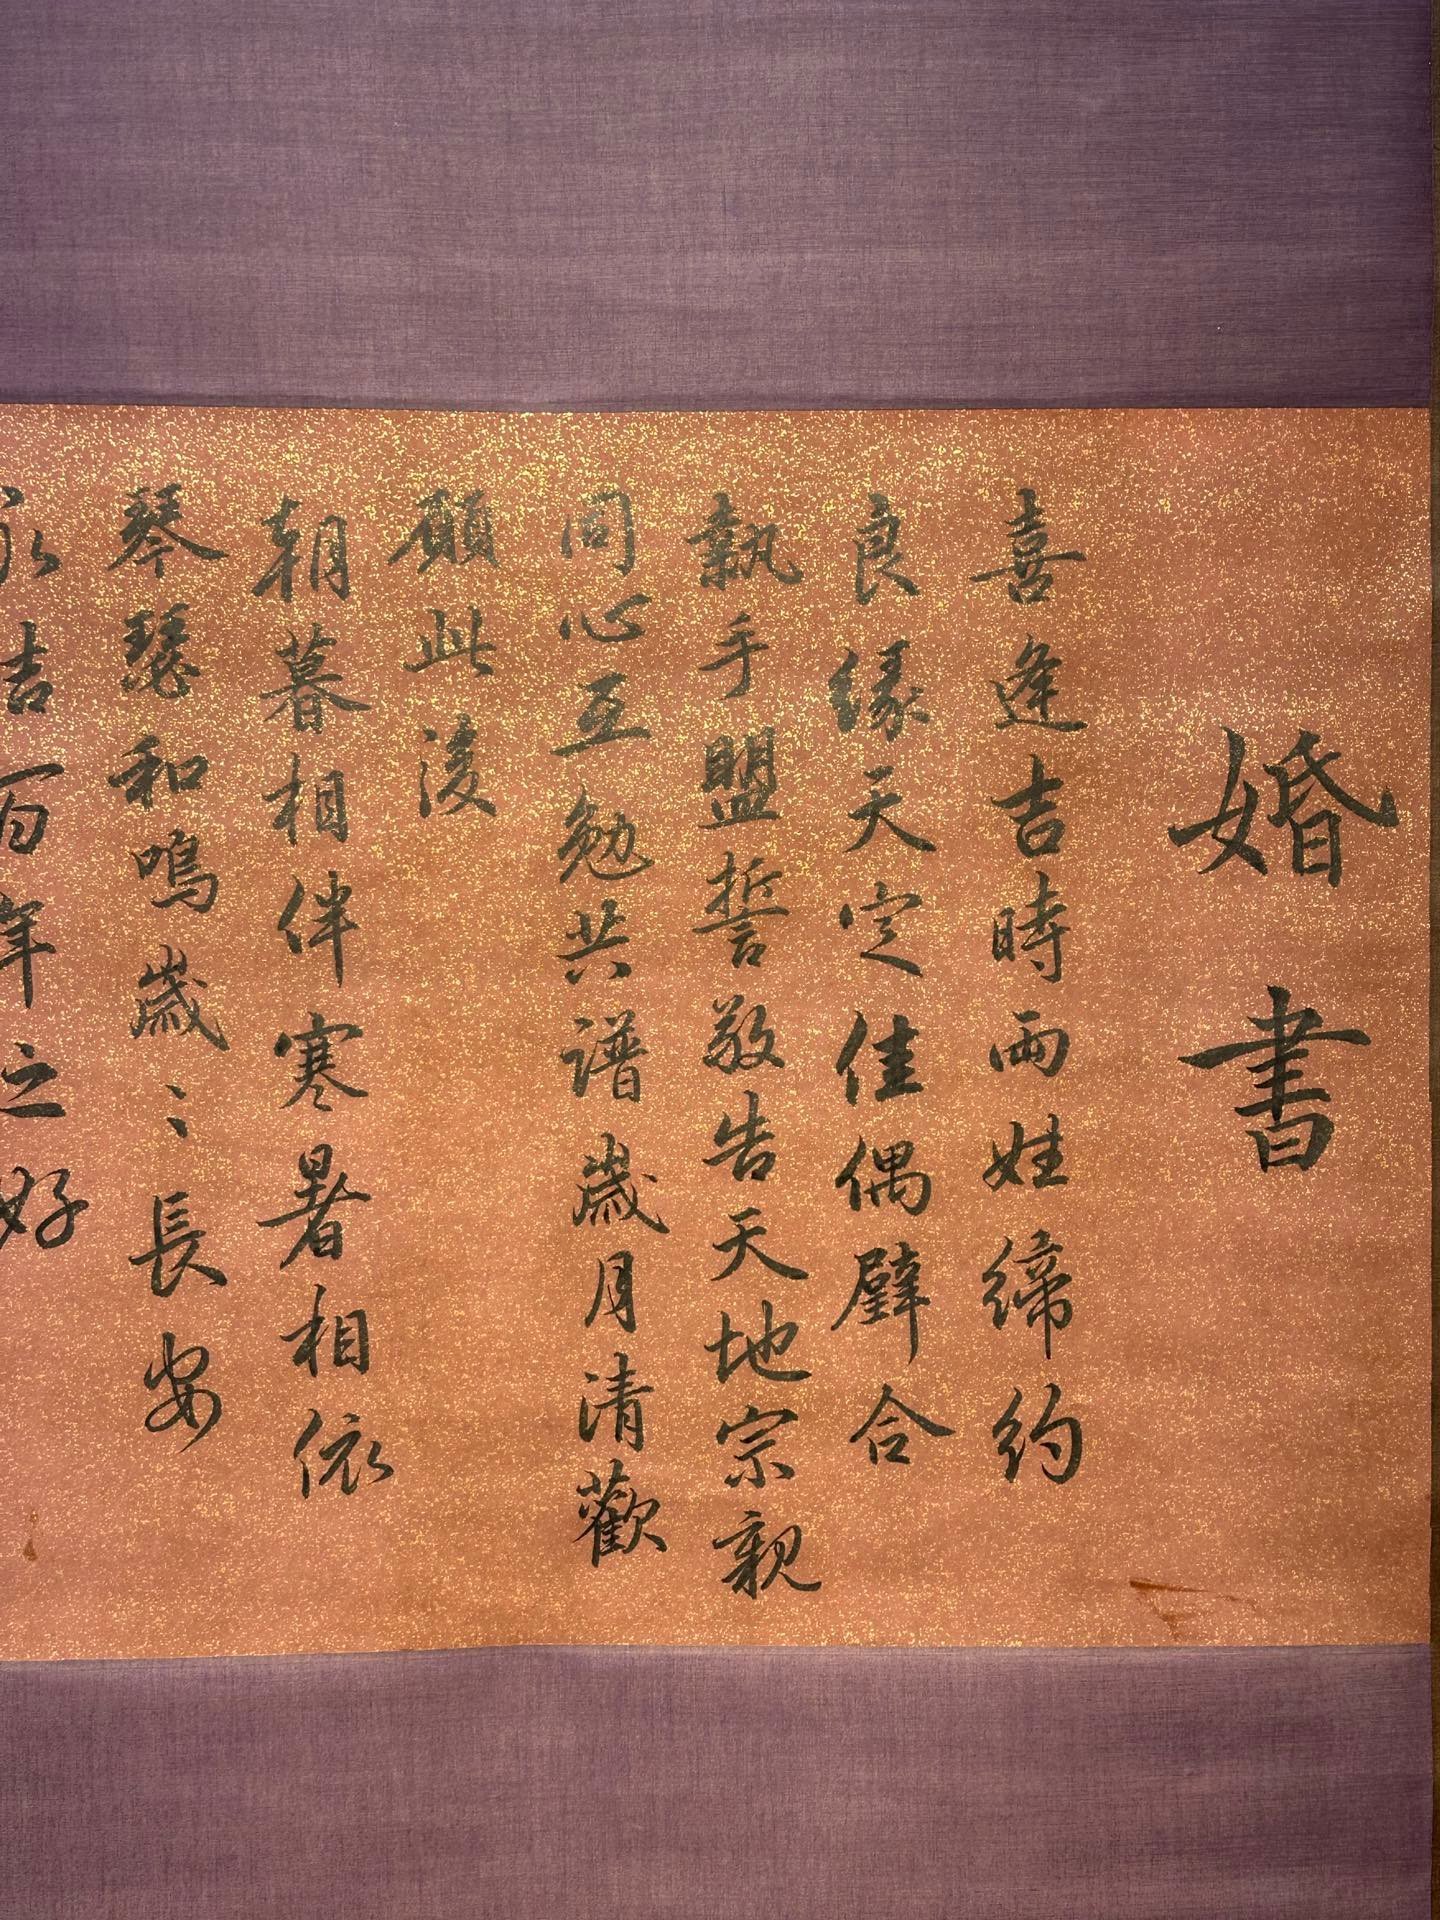 婚書
喜逢吉時兩姓締約
良緣天定佳偶璧合
執手盟誓敬告天地宗親
同心互勉共譜歲月清歡
願此後
朝暮相伴寒暑相依
琴瑟和鳴歲〻長安
永吉百年之好